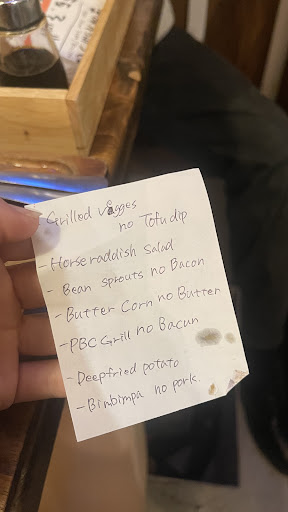 - Grilled vegges
no Tofu dip
- Horseraddish Salad
- Bean sprouts no Bacon
- Butter Corn no Butter
- PBC Grill no Bacun
- Deepfried potato
- Bimbimpa no pork.